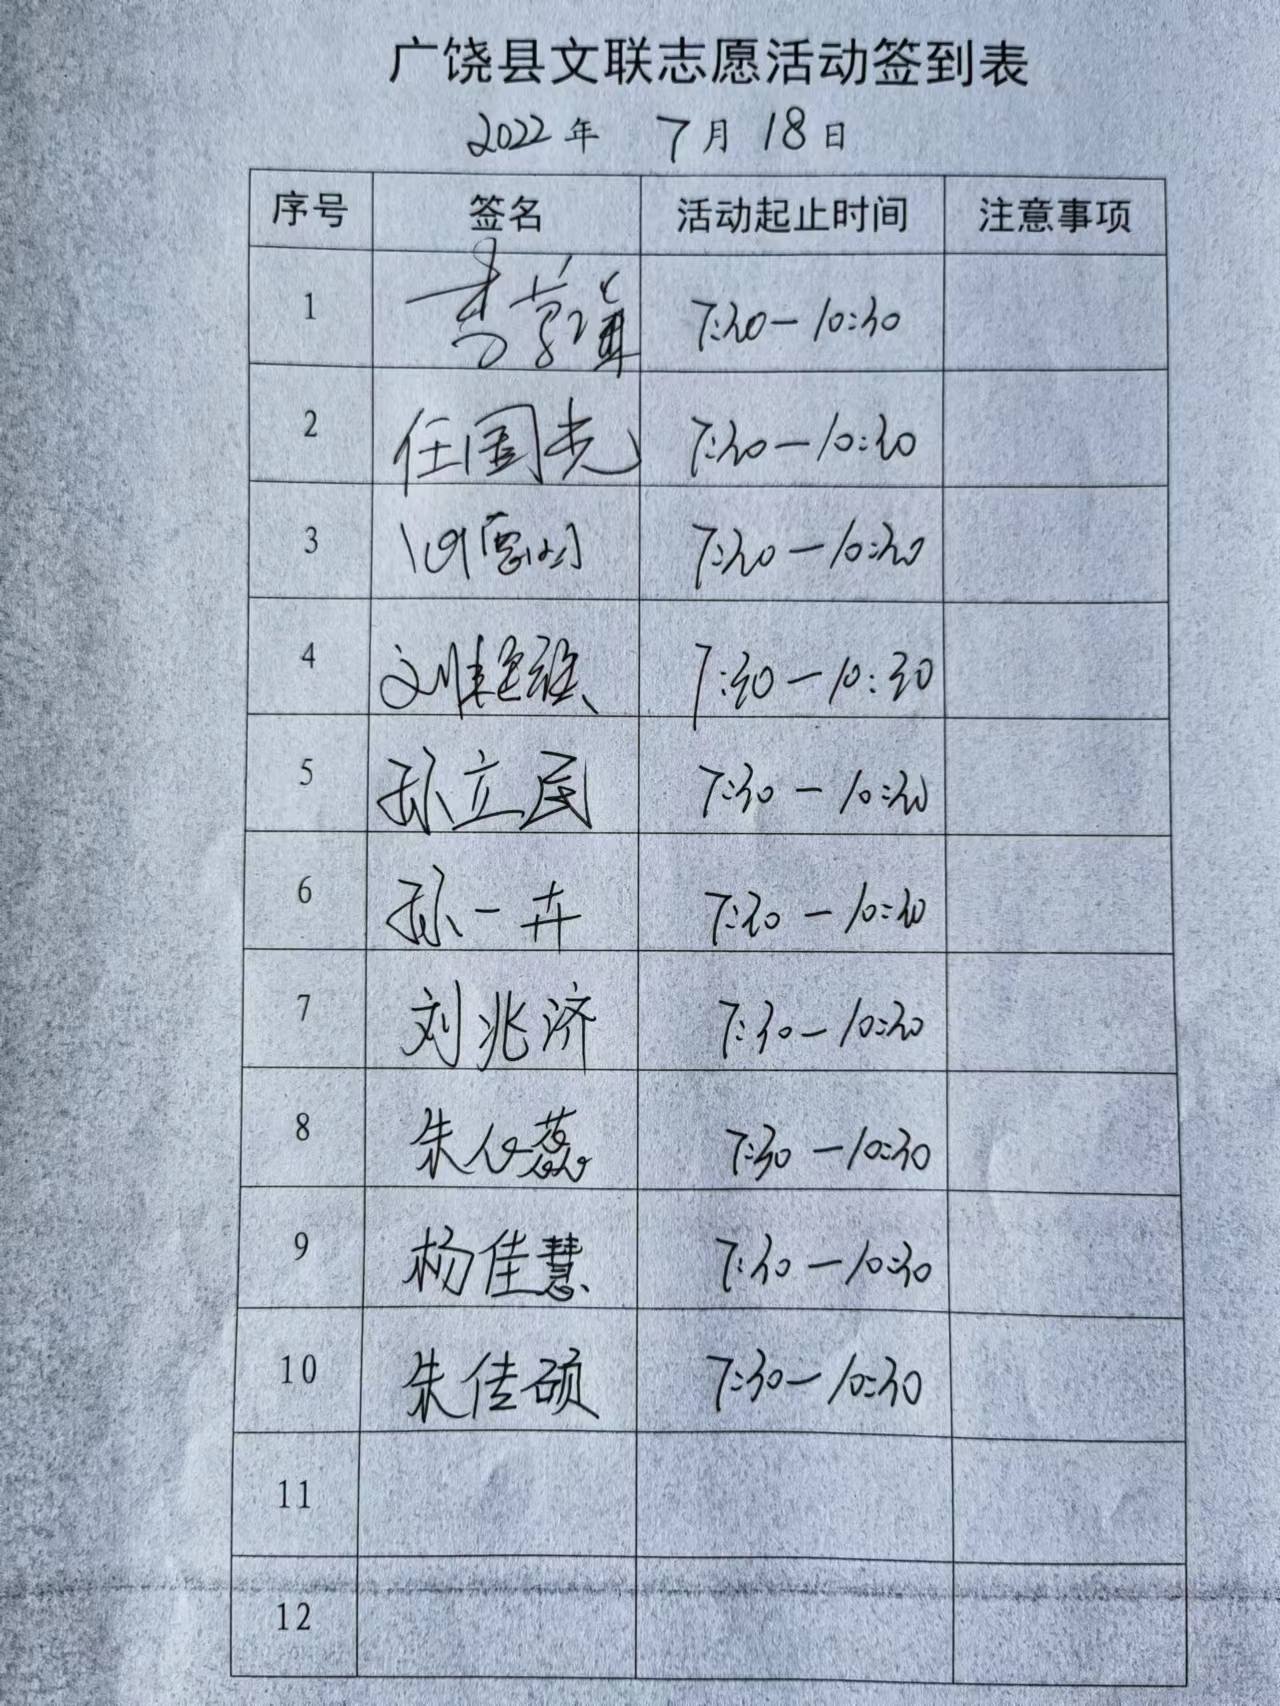 广饶县文联志愿活动签到表
2022年 7月18日
序号 签名 活动起止时间 注意事项
1 李 7:30—10:30
2 任国光 7:30—10:30
3 7:30—10:30
4 刘 7:30—10:30
5 孙立民 7:30—10:30
6 孙一卉 7:30—10:30
7 刘兆济 7:30—10:30
8 朱心蕊 7:30—10:30
9 杨佳慧 7:30—10:30
10 朱佳硕 7:30—10:30
11
12